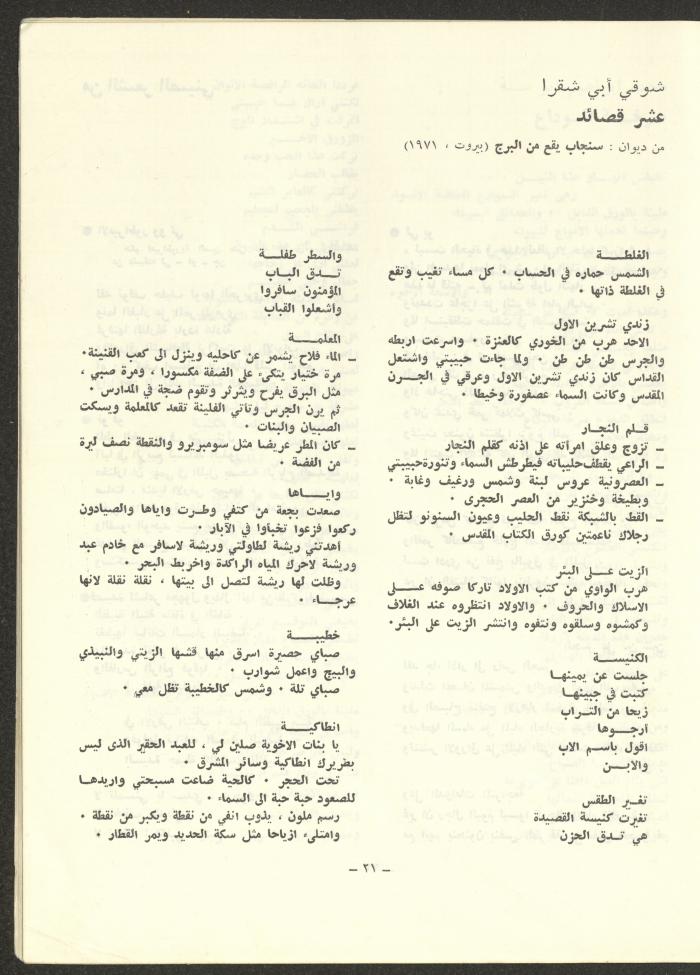 شوقي أبي شقرا
عشر قصائد
من ديوان : سنجاب يقع من البرج (بيروت ، ١٩٧١)
الغلطــة
الشمس حماره في الحساب ٠ كل مساء تغيب وتقع
في الغلطة ذاتها ٠
زندي تشرين الاول
الاحد هرب من الخوري كالعنزة ٠ واسرعت اربطه
والجرس طن طن طن ٠ ولما جاءت حبيبتي واشتعل
القداس كان زندي تشرين الاول وعرقي في الجــرن
المقدس وكانت السماء عصفورة وخيطا ٠
قــلم النجــار
ــ تزوج وعلق امرأته على اذنه كقلم النجار
ــ الراعي يقطف حليباته فيطرطش السماء وتنورة حبيبتي
ــ العصرونية عروس لبنة وشمس ورغيف وغابة ٠
وبطيخة وخنزير من العصر الحجرى ٠
ــ القط بالشبكة نقط الحليب وعيون السنونو لتظل
رجلاك ناعمتين كورق الكتاب المقدس ٠
الزيت علــى البئر
هرب الواوي من كتب الاولاد تاركا صوفه علــى
الاسلاك والحروف ٠ والاولاد انتظروه عند الغلاف
وكمشوه وسلقوه ونتفوه وانتشر الزيت على البئر٠
الكنيســة
جلست عن يمينهـا
كتبت في جبينهـا
زيحا من التــراب
أرجــوها
اقول باسـم الاب
والابــن
تغـير الطقس
تغيرت كنيسة القصيدة
هي تــدق الحزن
والسطر طفلــة
تــدق البــاب
المؤمنون سافروا
وأشعلوا القباب
المعلمــة
ــ الماء فلاح يشمر عن كاحليه وينزل الى كعب القنينة٠
مرة ختيار يتكيء على الضفة مكسورا ، ومرة صبي ،
مثل البرق يفرح ويثرثر وتقوم ضجة في المدارس ٠
ثم يرن الجرس وتأتي الفلينة تقعد كالمعلمة ويسكت
الصبيان والبنات ٠
ــ كان المطر عريضا مثل سومبريرو والنقطة نصف ليرة
من الفضة ٠
وايــاها
صعدت بجعة من كتفي وطــرت واياها والصيادون
ركعوا فزعوا تخبأوا في الآبار ٠
أهدتني ريشة لطاولتي وريشة لاسافر مع خادم عبد
وريشة لاحرك المياه الراكدة واخربط البحر ٠
وظلت لها ريشة لتصل الى بيتها ، نقلة نقلة لانها
عرجــاء ٠
خطيبــة
صباي حصيرة اسرق منها قشها الزيتي والنبيذي
والبيج واعمل شوارب ٠
صباي تلة ٠ وشمس كالخطيبة تظل معي ٠
انطاكيــة
يا بنات الاخوية صلين لي ، للعبد الحقير الذى ليس
بطريرك انطاكية وسائر المشرق ٠
تحت الحجر ٠ كالحية ضاعت مسبحتي واريدهـا
للصعود حبة حبة الى السماء ٠
رسم ملون ، يذوب انفي من نقطة ويكبر من نقطة ٠
وامتلىء ازياحا مثل سكة الحديد ويمر القطار ٠
ــ ٢١ ــ